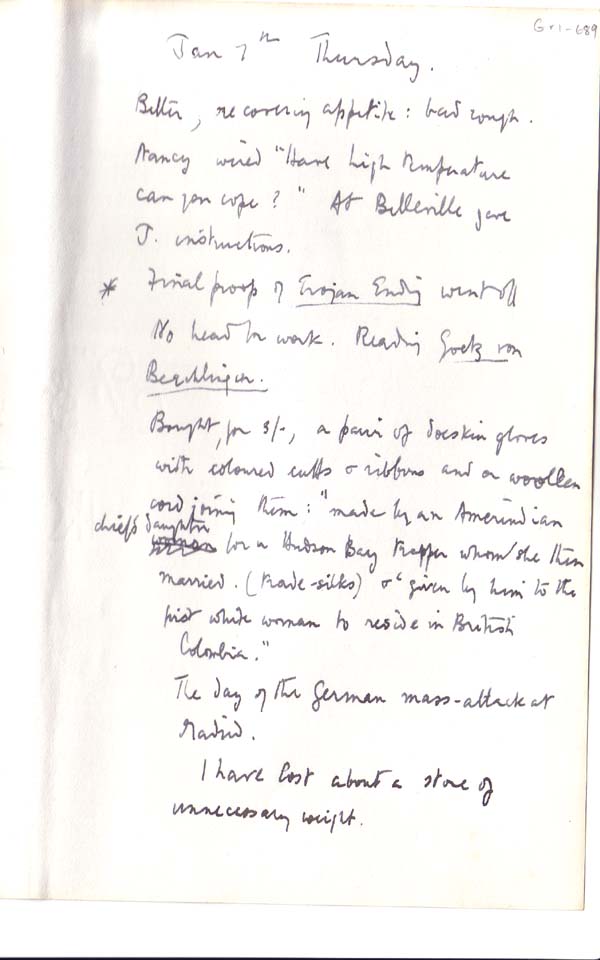 Gr1-689
Jan 7th Thursday.
Better, recovering appetite: bad cough.
Nancy wired "Have high temperature
can you cope?" At Belleville gave
J. instructions.
* Final proofs of Trojan Ending went off
No head for work. Reading Goetz von
Berchlingen.
Bought, for 3/-, a pair of doeskin gloves
with coloured cuffs & ribbons and a woollen
cord joining them: "made by an Amerindian
chief's daughter
for a Hudson Bay trapper whom she then
married. (trade-silks) & "given by him to the
first white woman to reside in British
Colombia."
The day of the German mass-attack at
Madrid.
I have lost about a stone of
unnecessary weight.